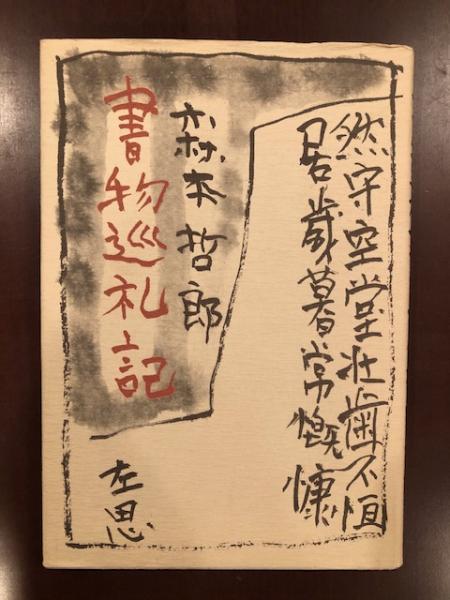 然守空堂壮歯不恒
居歳暮常慨慷
森本哲郎
書物巡礼記
左思